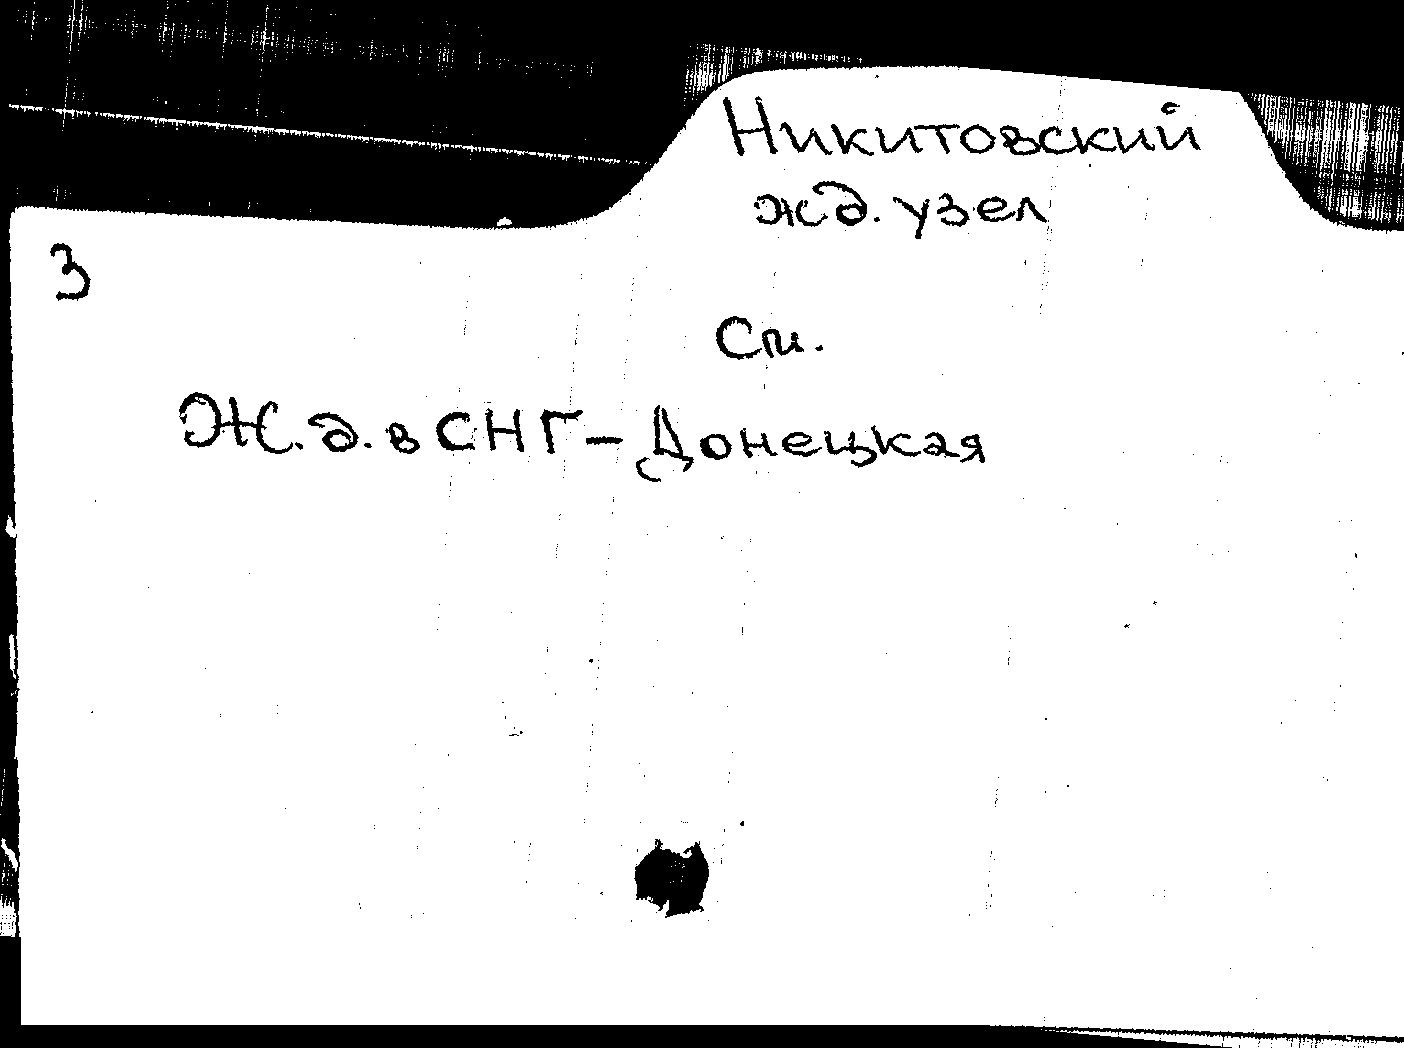 Никитовский
жд. узел
З
См.
Ж.д. в СНГ – Донецкая